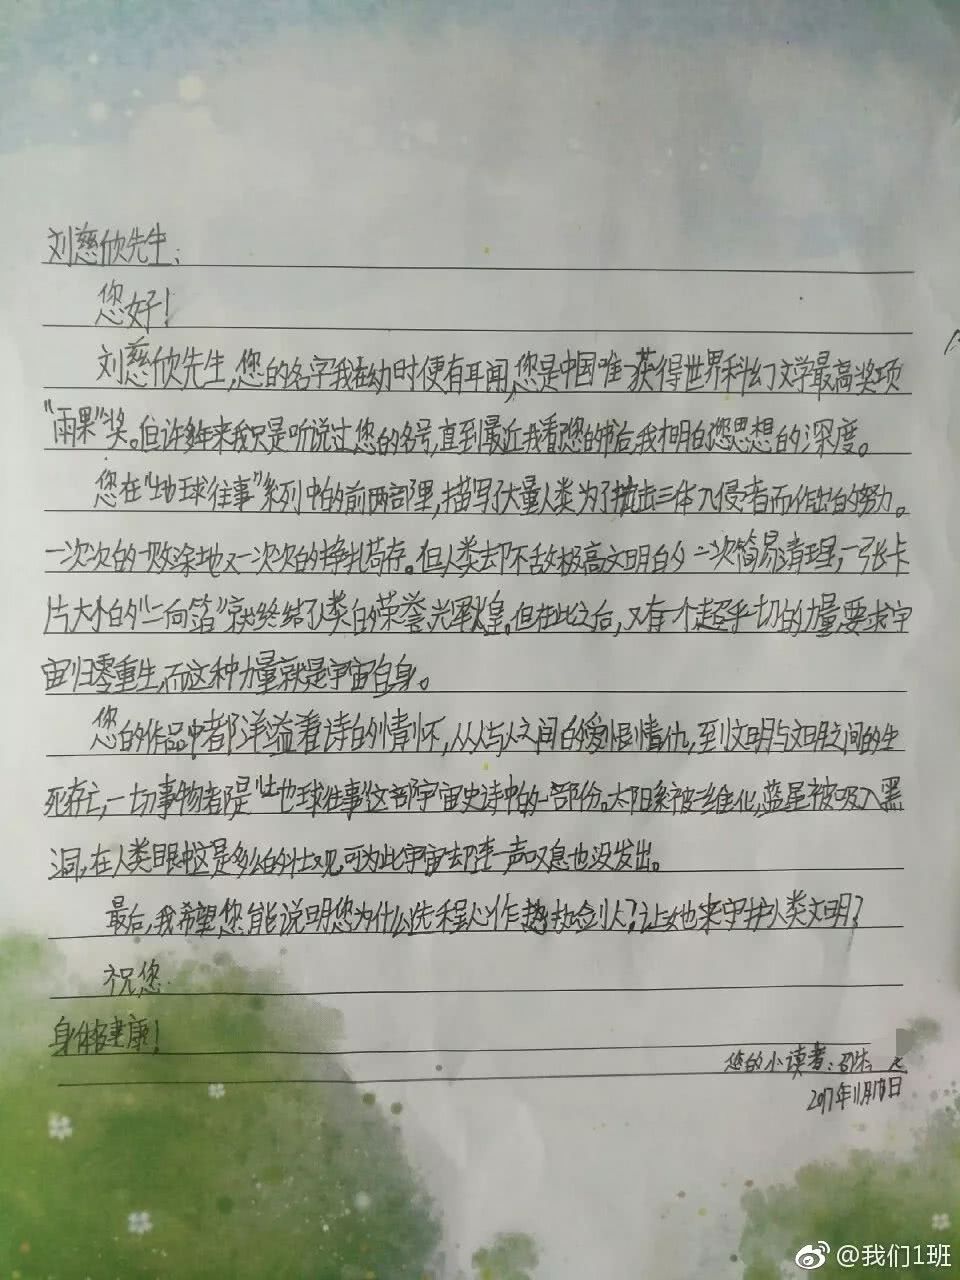 刘慈欣先生:
您好!
刘慈欣先生,您的名字我在幼时便有耳闻,您是中国唯一获得世界科幻文学最高奖项
“雨果”奖。但许多年来我只是听说过您的名号,直到最近我看您的书后,我才明白您思想的深度。
您在“地球往事”系列中的前两部里,描写了大量人类为了抗击三体入侵者而作出的努力。
一次次的一败涂地又一次次的挣扎苟存。但人类却不敌极高文明的一次简易清理,一张卡
片大小的“二向箔”就终结了人类的荣誉光辉煌。但在此之后,又有一个超乎一切的力量要求宇
宙归零重生,而这种力量就是宇宙自身。
您的作品中都洋溢着诗的情怀,从人与人之间的爱恨情仇,到文明与文明之间的生
死存亡,一切事物都是“地球往事”这部宇宙史诗中的一部份。太阳系被二维化,蓝星被吸入黑
洞,在人类眼中这是多么的壮观,可为此宇宙却连一声叹息也没发出。
最后,我希望您能说明您为什么选程心作执剑人?让她来守护人类文明?
祝您
身体健康!
您的小读者:
2017年11月18日
@我们1班